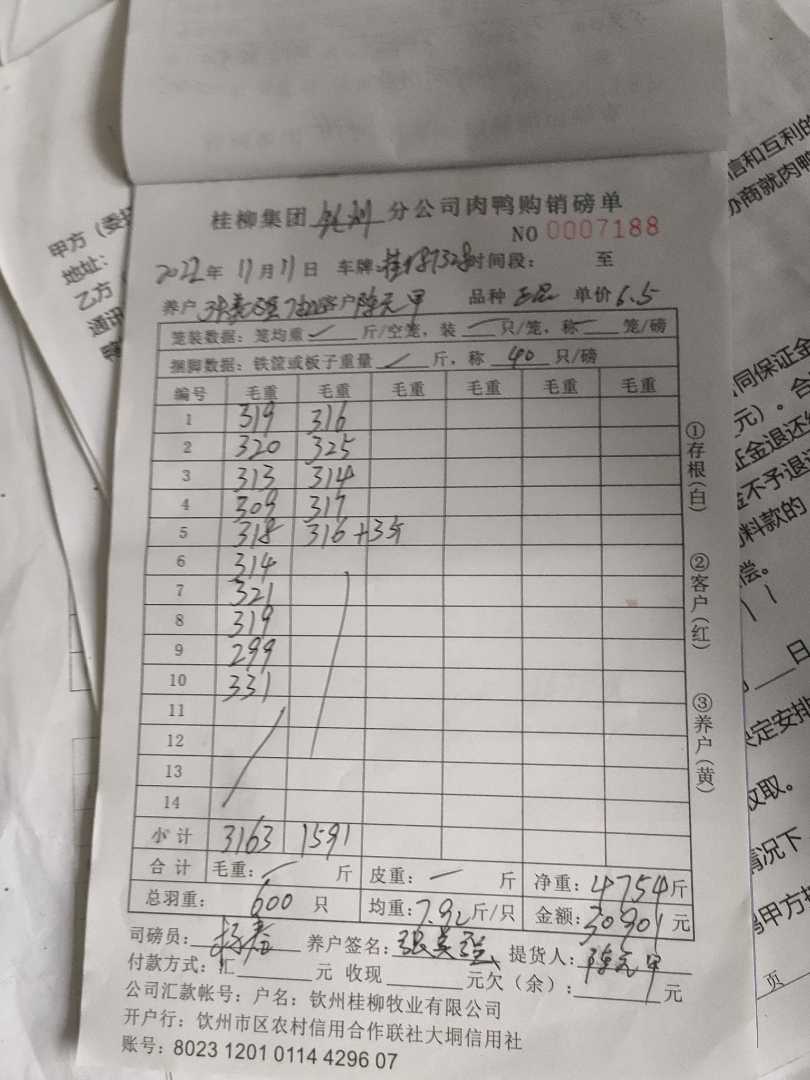 桂柳集团 钦州 分公司肉鸭购销磅单
NO 0007188
2022年 11月 11日 车牌:桂 时间段: 至
养户 客户 陈元甲 品种 正品 单价 6.5
笼装数据: 笼均重 斤/空笼, 装 只/笼, 称 笼/磅
捆脚数据: 铁筐或板子重量 斤, 称 40 只/磅
编号 毛重 毛重 毛重 毛重 毛重 毛重
1 319 316
2 320 325
3 313 314
4 309 317
5 318 316+3斤
6 314
7 321
8 319
9 299
10 331
11
12
13
14
小计 3163 1591
合计 毛重: 斤 皮重: 斤 净重: 4754斤
总羽重: 600 只 均重: 7.92斤/只 金额: 30901 元
司磅员: 养户签名: 提货人: 陈元甲
付款方式: 汇 元 收现 元欠(余): 元
公司汇款帐号: 户名: 钦州桂柳牧业有限公司
开户行: 钦州市区农村信用合作联社大垌信用社
账号: 8023 1201 0114 4296 07
①存根(白)
②客户(红)
③养户(黄)
甲方(委
地址:
乙方
通讯
信和互利的
办商就肉鸭
同保证金
元)。合
证金退还
金不予退
料款的
偿。
日
决定安排
收取。
情况下
甲方
页